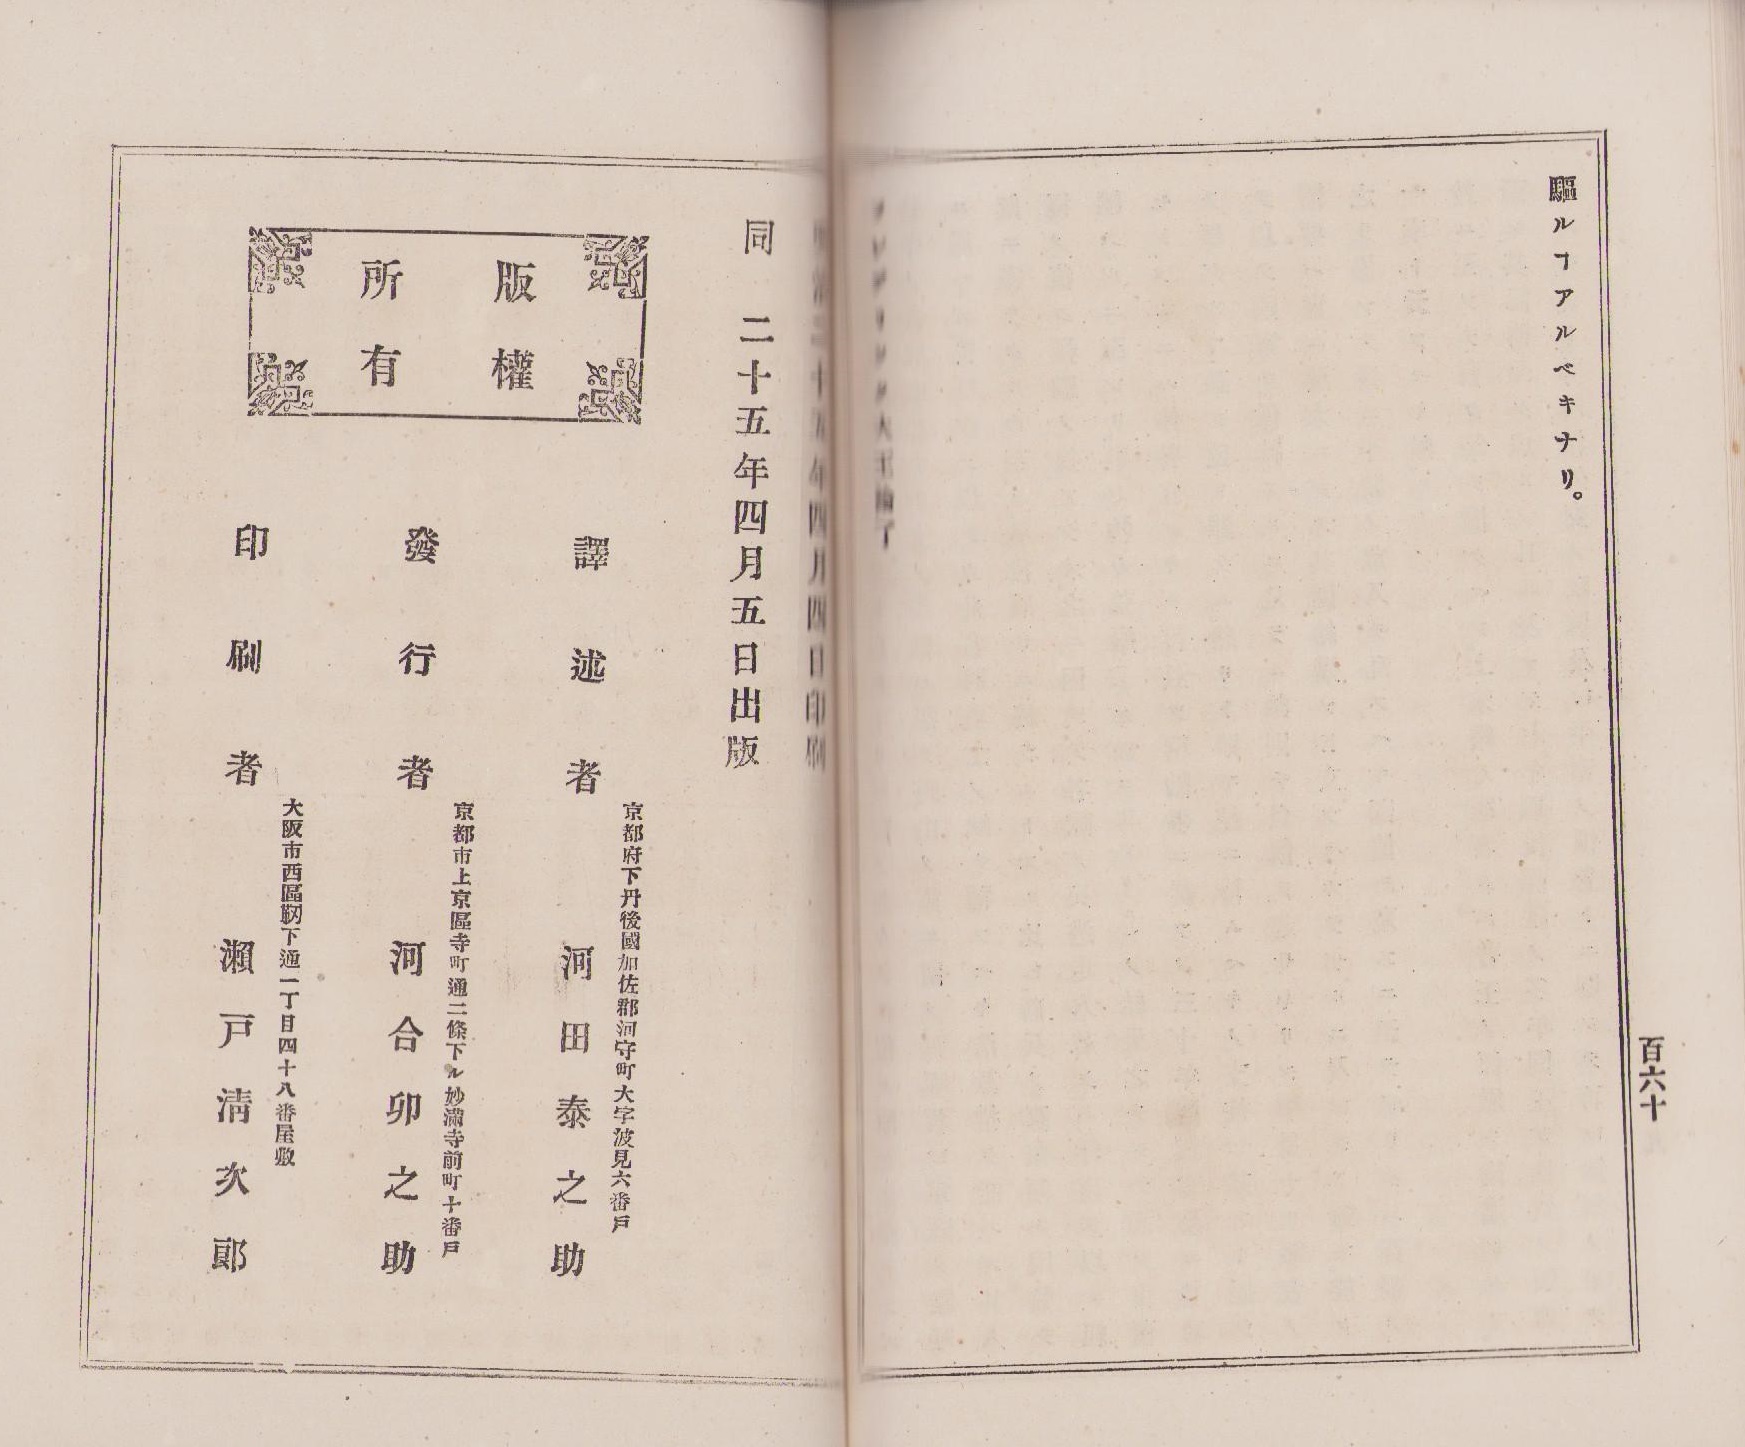 驅ルヿアルベキナリ。
百六十
明治二十五年四月四日印刷
同 二十五年四月五日出版
版權
所有
京都府下丹後國加佐郡河守町大字波見六番戸
譯述者 河田泰之助
京都市上京區寺町通二條下ル妙滿寺前町十番戸
發行者 河合卯之助
大阪市西區靱下通一丁目四十八番屋敷
印刷者 瀨戸淸次郎